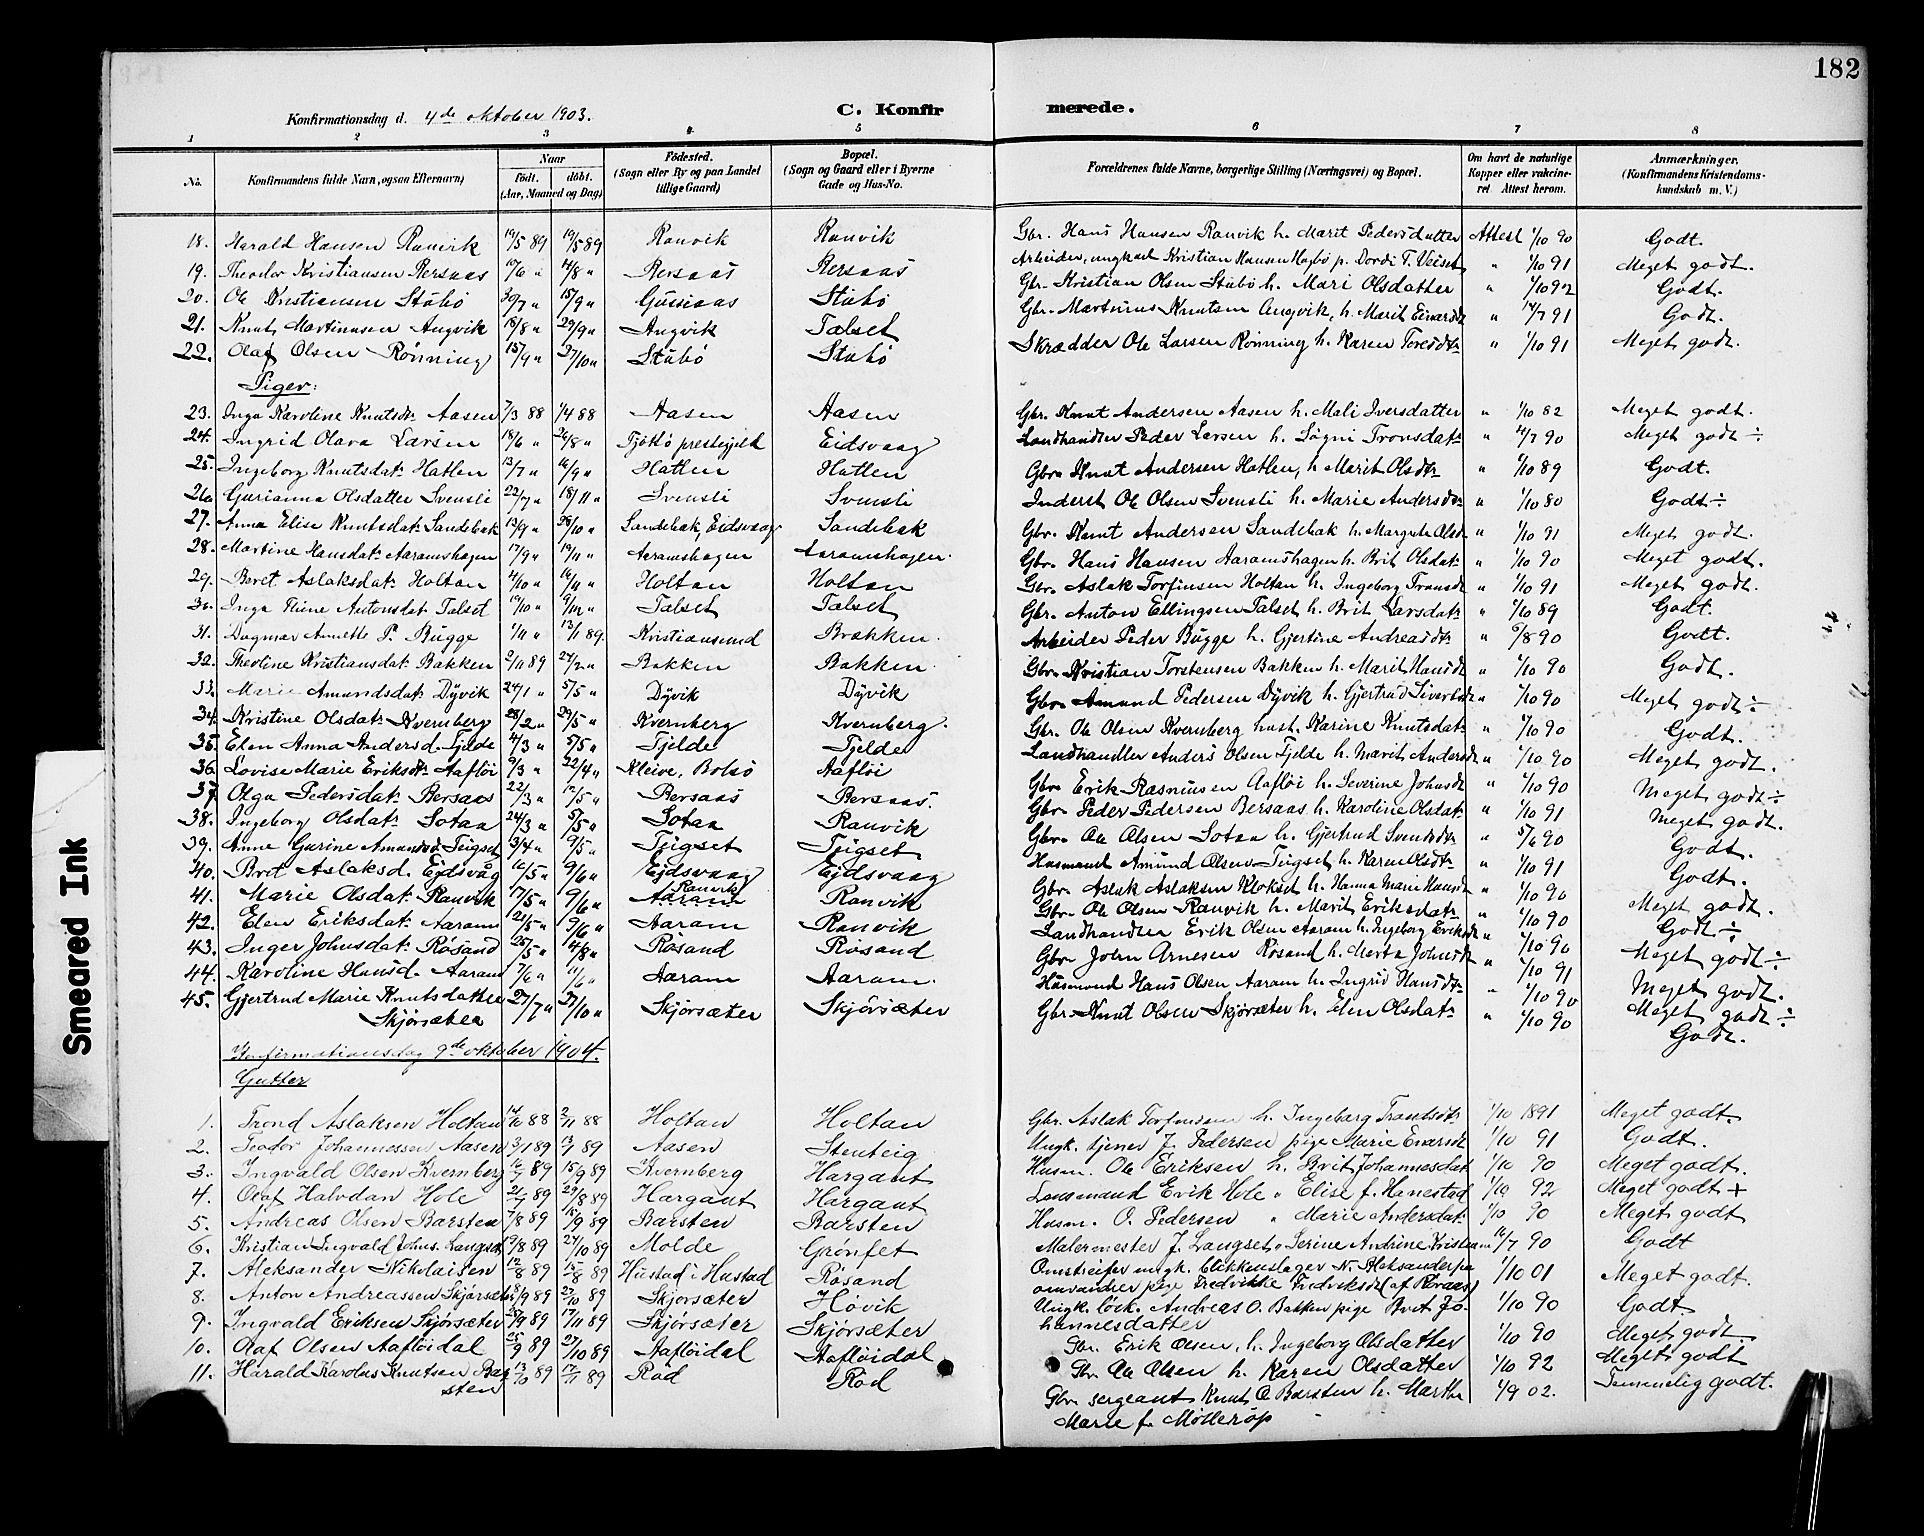 182
Konfirmationsdag d. 4de oktober 1903.
C. Konfir merede.
1 2 3 4 5 6 7 8
No. Konfirmandens fulde Navn, ogsaa Efternavn) Naar født. døbt. (Aar, Maaned og Dag) Fødested. (Sogn eller By og paa Landet tillige Gaard) Bopæl. (Sogn og Gaard eller i Byerne Gade og Hus-No. Forældrenes fulde Navne, borgerlige Stilling (Næringsvei) og Bopæl. Om havt de naturlige Kopper eller vakcineret. Attest herom. Anmærkninger. (Konfirmandens Kristendomskundskab m. V.)
18. Harald Hansen Ranvik 19/5 89 19/5 89 Ranvik Ranvik Gbr. Hans Hansen Ranvik h. Marit Pedersdatter Attest 1/10 90 Godt.
19. Theodor Kristiansen Bersaas 10/6 " 14/8 " Bersaas Bersaas Arbeider, ungkarl Kristian Hansen p. Dordi T. " 1/10 91 Meget godt.
20. Ole Kristiansen Stubø 30/7 " 15/9 " Gussiaas Stubø Gbr. Kristian Olsen Stubø h. Mari Olsdatter " 1/10 92 Godt.
21. Knut Martinusen Angvik 18/8 " 29/9 " Angvik Talset Gbr. Martinus Knutsen Angvik, h. Marit " 14/7 91 Godt.
22. Olaf Olsen Rønning 15/9 " 27/10 " Stubø Stubø Skrædder Ole Larsen Rønning h. Karen Toresdtr " 1/10 91 Meget godt.
Piger:
23. Inga Karoline Knutsdtr Aasen 7/3 88 1/4 88 Aasen Aasen Gbr. Knut Andersen Aasen h. Mali Iversdatter " 1/10 82 Meget godt.
24. Ingrid Olava Larsen 18/6 " 26/8 " Tjøttø prestegjeld Eidsvaag Landhandler Peder Larsen h. Søgni Tronsdatr " 4/7 90 Meget godt ÷
25. Ingeborg Knutsdatr Hatlen 13/7 " 16/9 " Hatlen Hatlen Gbr. Knut Andersen Hatlen, h. Marit Olsdtr " 1/10 89 Godt.
26. Gurianna Olsdatter Svensli 22/7 " 18/11 " Svensli Svensli Inderst Ole Olsen Svensli h. Marie Andersdtr " 1/10 80 Godt ÷
27. Anna Elise Knutsdatr Sandebak 13/9 " 28/10 " Sandebak, Eidsvaag Sandebak Gbr. Knut Andersen Sandebak h. Margrete Olsd " 1/10 91 Meget godt.
28. Martine Hansdatr Aaramshagen 17/9 " 19/11 " Aaramshagen Aaramshagen. Gbr. Hans Hansen Aaramshagen h. Brit Olsdatr " 1/10 90 Meget godt.
29. Beret Aslaksdatr Holtan 4/10 " 16/11 " Holtan Holtan Gbr. Aslak Torfinsen Holtan h. Ingeborg Transdtr " 1/10 91 Meget godt.
30. Inga Thine Antonsdat Talset 19/10 " 9/12 " Talset Talset Gbr. Anton Ellingsen Talset h. Brit Larsdatr " 1/10 89 Godt.
31. Dagmar Annette P. Bugge 1/11 " 13/1 89. Kristiansund Brækken. Arbeider Peder Bugge h. Gjertine Andreasdtr " 6/8 90 Godt.
32. Theoline Kristiansdatr Bakken 2/1 89 24/2 " Bakken Bakken. Gbr. Kristian Torstensen Bakken h. Marit Hansdtr " 1/10 90 Godt.
33. Marie Amundsdatr Dÿvik 24/1 " 5/5 " Dÿvik Dÿvik Gbr. Amund Pedersen Dÿvik h. Gjertrud " 1/10 90 Meget godt ÷
34. Kristine Olsdatr Kvernberg 28/2 " 29/5 " Kvernberg Kvernberg. Gbr. Ole Olsen Kvernberg hust. Karine Knutsdatr " 1/10 90 Godt.
35. Elen Anna Andersd. Tjelde 4/3 " 5/5 " Tjelde Tjelde Landhandler Anders Olsen Tjelde h. Marit Andersdt " 1/10 90 Meget godt.
36. Lovise Marie Eriksdtr Aafløi 9/3 " 22/4 " Kleive, Bolsø Aafløi Gbr. Erik Rasmusen Aafløi h. Severine Johnsdt " 1/10 90 Meget godt ÷
37. Olga Pedersdatr Bersaas 22/3 " 12/5 " Bersaas Bersaas. Gbr. Peder Pedersen Bersaas h. Karoline Olsdatr " 1/10 91 Meget godt.
38. Ingeborg Olsdatr Sotaa 24/3 " 5/5 " Sotaa Ranvik Gbr. Ole Olsen Sotaa h. Gjertrud Svendsdtr " 5/6 90 Godt.
39. Anne Gurine Amundsd. Teigset 3/4 " 9/5 " Teigset Teigset Husmand Amund Olsen Teigset h. Karen Olsdtr " 1/10 91 Godt.
40. Brit Aslaksd. Eidsvåg 16/5 " 9/6 " Eidsvaag Eidsvaag Gbr. Aslak Aslaksen Klokset h. Hanna Marie Hansdt " 1/10 90 Meget godt.
41. Marie Olsdatr Ranvik 17/5 " 9/6 " Aaram Ranvik Ranvik Gbr. Ole Olsen Ranvik h. Marit Eriksdatr " 1/10 90 Godt ÷
42. Elen Eriksdatr Aaram 21/5 " 9/6 " Aaram Ranvik Landhandler Erik Olsen Aaram h. Ingeborg Eriksdt " 1/10 90 Meget godt ÷
43. Inger Johnsdatr Røsand 25/5 " 4/8 " Røsand Røsand Gbr. John Arnesen Røsand h. Merta Johnsdt " 1/10 91 Meget godt.
44. Karoline Hansd. Aaram 7/6 " 11/6 " Aaram Aaram. Husmand Hans Olsen Aaram h. Ingrid Hansdtr " 1/10 90 Meget godt ÷
45. Gjertrud Marie Knutsdatter Skjørsæter 27/7 " 27/10 " Skjørsæter Skjørsæter Gbr. Knut Olsen Skjørsæter h. Elen Olsdatr " 1/10 90 Godt.
Konfirmationsdag 9de oktober 1904.
Gutter
1. Trond Aslaksen Holtan 14/10 88 2/11 88 Holtan Holtan Gbr. Aslak Torfinsen h. Ingeborg Trondsdtr 1/10 1891 Meget godt.
2. Teodor Johannessen Aasen 3/1 89 13/1 89 Aasen Stenteig Ungk. tjener J. Pedersen pige Marie Einarsdt 1/10 91 Godt.
3. Ingvald Olsen Kvernberg 12/7 89 15/9 89 Kvernberg Hargaut Husm. Ole Eriksen h. Brit Johannesdat 1/10 90 Meget godt.
4. Olaf Halvdan Hole 21/7 89 29/8 89 Hargaut Hargaut Lensmand Erik Hole " Elise f. Hanestad 1/10 92 Meget godt +
5. Andreas Olsen Barsten 7/8 89 15/9 89 Barsten Barsten Husm. O. Pedersen " Marie Andersdatr 1/10 90 Meget godt
6. Kristian Ingvald Johs. Langset 19/8 89 27/10 89 Molde Grønfet Malermester J. Langset " Serine Andrine Kristiansen 16/7 90 Godt
7. Aleksander Nikolaisen 12/8 89 15/8 89 Hustad i Hustad Røsand Omstreifer ungk. blikkenslager N. Aleksandersen omvandrer pige Fredrikke Fredriksdt (af Røraas) 1/10 01 Meget godt.
8. Anton Andreassen Skjørsæter 18/9 89 27/10 89 Skjorsæter Høvik Ungk. løsk. Andreas O. Bakken pige Brit Johannesdatter 1/10 90 Godt
9. Ingvald Eriksen Skjørsæter 28/9 89 17/11 89 Skjørsæter Skjørsæter Gbr. Erik Olsen, h. Ingeborg Olsdatter 1/10 90 Meget godt.
10. Olaf Olsen Aafløidal 25/9 89 27/10 89 Aafløidal Aafløidal Gbr. Ole Olsen h. Karen Olsdatter 1/10 92 Meget godt
11. Harald Karolus Knutsen Barsten 13/10 89 17/11 89 Rød Rød Gbr. sergeant Knut O. Barsten h. Martha Marie f. Møllerop 1/9 02. Temmelig godt.
Smeared Ink